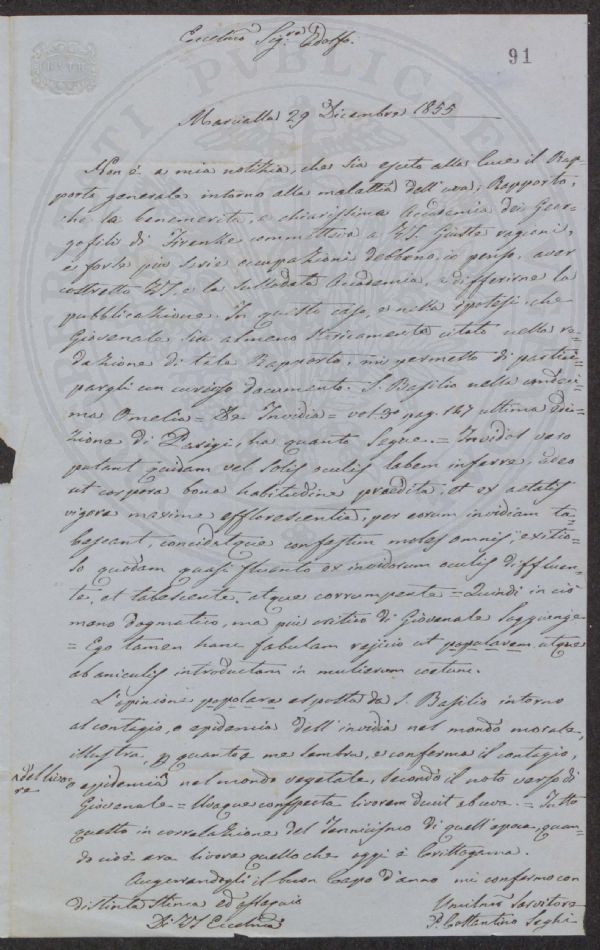 91
Eccelmo Sigre Adolfo.
BATH
REIPUBLICAE
Marcialla 29 Dicembre 1855
Non è a mia notizia, che sia escito alla luce il Rap-
porto generale intorno alla malattia dell'uva; Rapporto,
che la benemerita, e chiarissima Accademia dei Geor-
gofili di Firenze commetteva a VS. Giuste ragioni,
e forse più serie occupazioni debbono, io penso, aver
costretto VS. e la sullodata Accademia, a differirne la
pubblicazione. In questo caso, e nella ipotesi che
Giovenale sia almeno storicamente citato nella re-
dazione di tale Rapporto, mi permetto di parteci-
pargli un curioso documento. S. Basilio nella undeci-
ma Omelia = De Invidia = vol. 3o pag. 127 ultima edi-
zione di Parigi, ha quanto segue. = Invidos vero
putant quidam vel solis oculis labem inferre, adeo
ut corpora bona habitudine praedita, et ex aetatis
vigore maxime efflorescentia, per eorum invidiam ta-
bescant, concidatque confestim moles omnis, exitio-
so quodam quasi fluento ex invidorum oculis diffluen-
te, et tabescente, atque corrumpente = Quindi in ciò
meno dogmatico, ma più critico di Giovenale soggiunge
= Ego tamen hanc fabulam rejicio ut popularem atque
ab aniculis introductam in mulierum coetum.
L'opinione popolare esposta da S. Basilio intorno
al contagio, o epidemia dell'invidia nel mondo morale,
illustra, p quanto a me sembra, e conferma il contagio,
o epidemia nel mondo vegetale, secondo il noto verso di
del livo-
re
Giovenale = Uvaque conspecta livorem ducit ab uva. = Tutto
questo in correlazione del tecnicismo di quell'epoca, quan-
do cioè era livore quello che oggi è Crittogama.
Augurandogli il buon Capo d'anno mi confermo con
distinta stima ed ossequio
Di VS Eccelma
Umilmo Servitore
P. Costantino Seghi